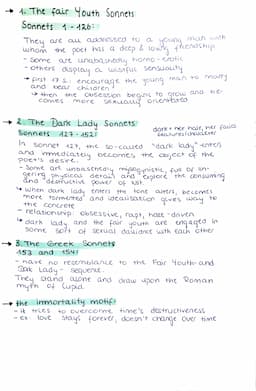 → 1. The fair Youth Sonnets
Sonnets 1 - 126:
They are all addressed to a young man with
whom the poet has a deep & loving friendship
- Some are unabashedly homo-erotic
- others display a wistful sensuality
→ first 17 s. encourage the young man to marry
and bear children
↳ then the obsession begins to grow and be-
comes more sexually orientated
→ 2. The Dark Lady Sonnets
Sonnets 127 - 152:
dark = her hair, her facial
features/characters
In sonnet 127, the so-called "dark lady" enters
and immediately becomes the object of the
poet's desire.
- Some are unabashedly misogynistic, full of lin-
gering physical detail and explore the consuming
and destructive power of lust.
↳ When dark lady enters the tone alters, becomes
more tormented and idealisation gives way to
the concrete
- relationship: obsessive, hate-driven
↳ dark lady and the fair youth are engaged in
some sort of sexual dalliance with each other
→ 3. The Greek Sonnets
153 and 154:
- have no resemblance to the Fair Youth and
Dark Lady - sequence.
They stand alone and draw upon the Roman
myth of Cupid.
→ the immortality motif:
- it tries to overcome time's destructiveness
- ex. love stays forever, doesn't change over time